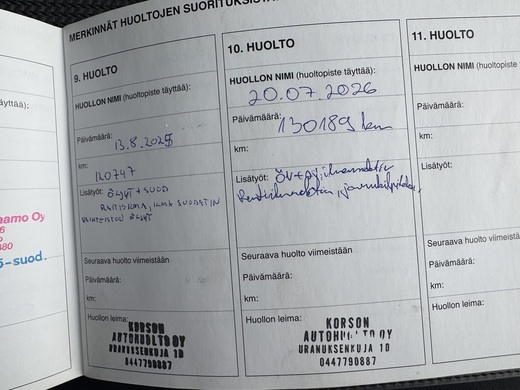 MERKINNÄT HUOLTOJEN SUORITUKSISTA
äyttää):
aamo Oy
6
o
380
ö-suod.
9. HUOLTO
HUOLLON NIMI (huoltopiste täyttää):
Päivämäärä:
13.8.2025
km:
120747
Lisätyöt: ÖLJYT + SUOD
RAITISILMA, ILMA SUODATIN
VAIHTEISTOÖLJYT
Seuraava huolto viimeistään
Päivämäärä:
km:
Huollon leima:
KORSON
AUTOHUOLTO OY
URANUKSENKUJA 1D
0447790887
10. HUOLTO
HUOLLON NIMI (huoltopiste täyttää):
20.07.2026
Päivämäärä:
130189 km
km:
Lisätyöt:
Seuraava huolto viimeistään
Päivämäärä:
km:
Huollon leima:
KORSON
AUTOHUOLTO OY
URANUKSENKUJA 1D
0447790887
11. HUOLTO
HUOLLON NIMI (huoltopiste
Päivämäärä:
km:
Lisätyöt:
Seuraava huolto viimeistään
Päivämäärä:
km:
Huollon leima: